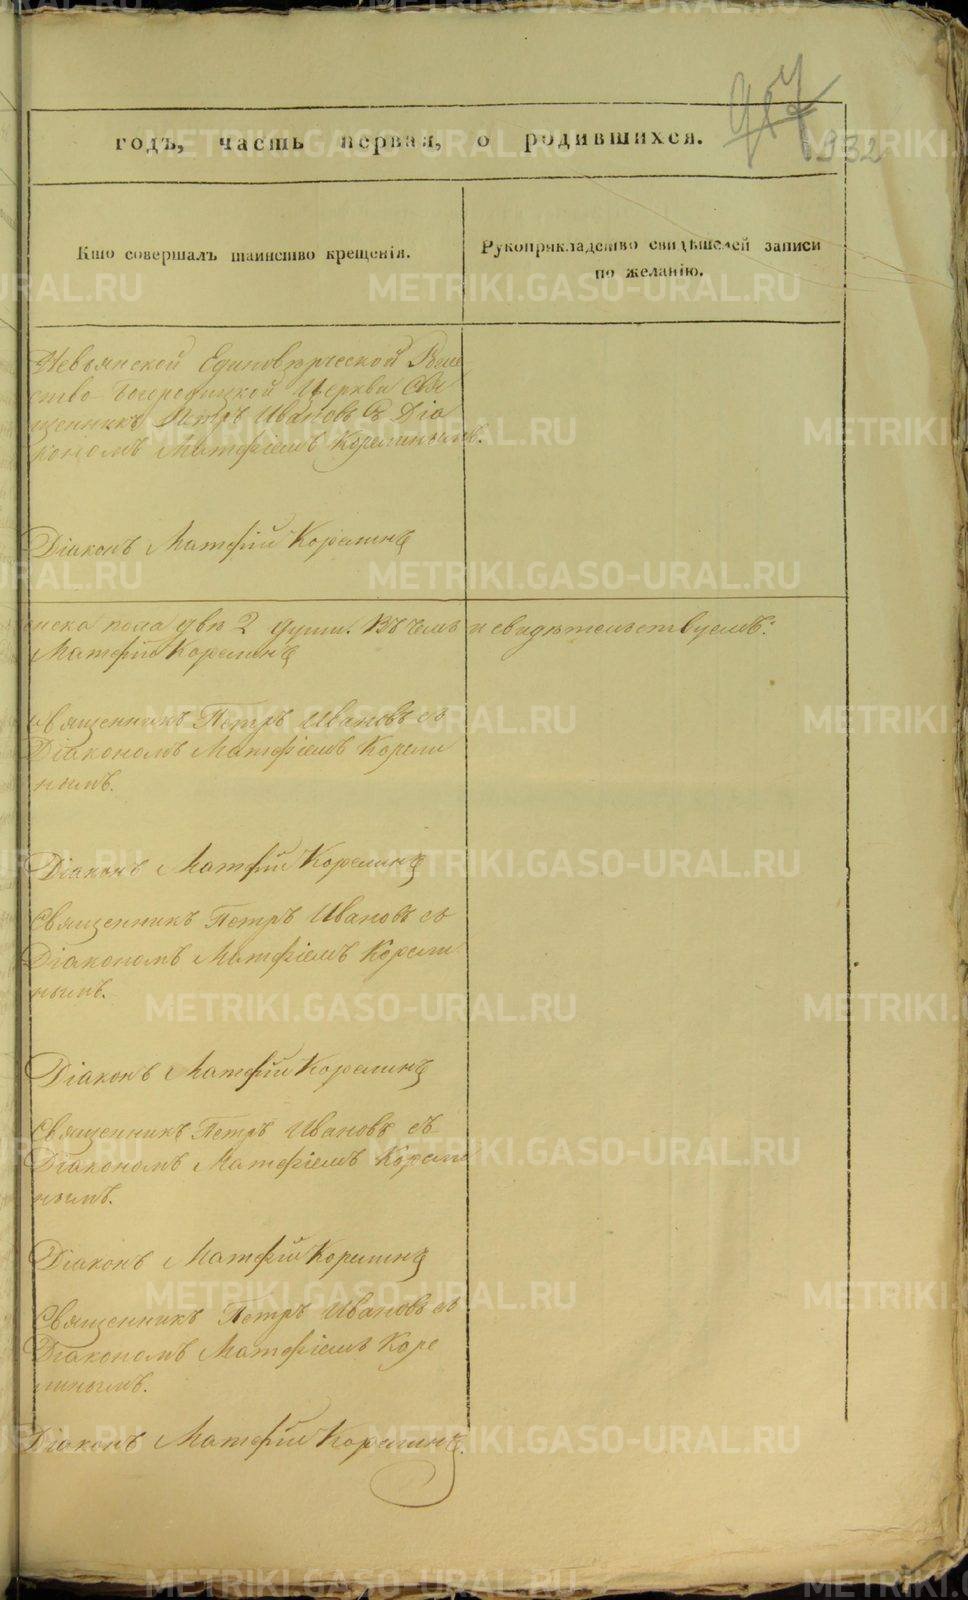 годъ, часть первая, о родившихся.
932
Кто совершалъ таинство крещенія.
Рукоприкладство свидѣтелей записи
по желанію.
Невьянской Единовѣрческой
ство Богородицкой Церкви Свя
щенникъ Петръ Ивановъ съ Діа
кономъ Матфіемъ Корелинымъ.
Діаконъ Матфій Корелинъ
женска пола двѣ 2 души. Въ чемъ и свидѣтельствуемъ:
Матфій Корелинъ
Священникъ Петръ Ивановъ съ
Діакономъ Матфіемъ Корели
нымъ.
Діаконъ Матфій Корелинъ
Священникъ Петръ Ивановъ съ
Діакономъ Матфіемъ Корели
нымъ.
Діаконъ Матфій Корелинъ
Священникъ Петръ Ивановъ съ
Діакономъ Матфіемъ Корели
нымъ.
Діаконъ Матфій Корелинъ
Священникъ Петръ Ивановъ съ
Діакономъ Матфіемъ Коре
линымъ.
Діаконъ Матфій Корелинъ.
METRIKI.GASO-URAL.RU